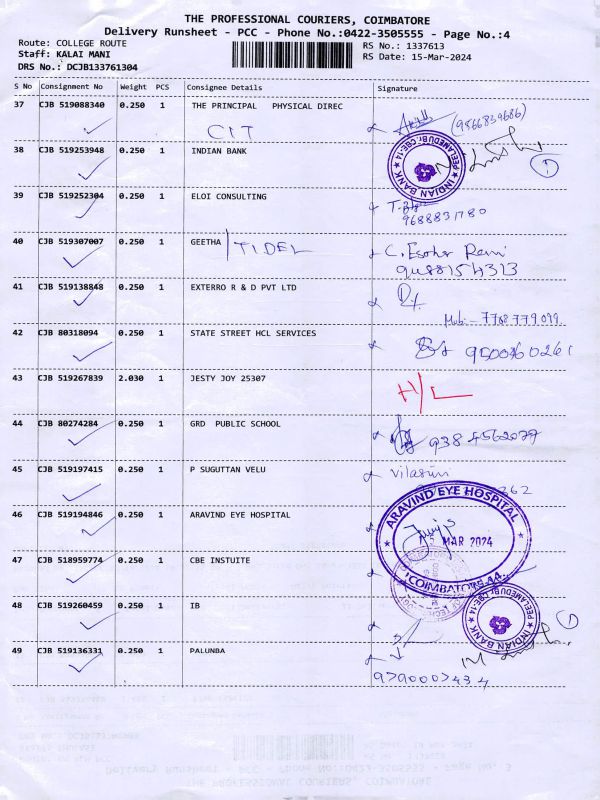 THE PROFESSIONAL COURIERS, COIMBATORE
Delivery Runsheet - PCC - Phone No.:0422-3505555 - Page No.:4
Route: COLLEGE ROUTE RS No.: 1337613
Staff: KALAI MANI RS Date: 15-Mar-2024
DRS No.: DCJB133761304
S No Consignment No Weight PCS Consignee Details Signature
37 CJB 519088340 0.250 1 THE PRINCIPAL PHYSICAL DIREC
CIT (9566839686)
38 CJB 519253948 0.250 1 INDIAN BANK
INDIAN BANK PEELAMEDU BR. CBE-14 1
39 CJB 519252304 0.250 1 ELOI CONSULTING
9688831780
40 CJB 519307007 0.250 1 GEETHA / TIDEL C. Esther Rani
9488154323
41 CJB 519138848 0.250 1 EXTERRO R & D PVT LTD
Mob:- 7708779099
42 CJB 80318094 0.250 1 STATE STREET HCL SERVICES 9500360261
43 CJB 519267839 2.030 1 JESTY JOY 25307 H/L
44 CJB 80274284 0.250 1 GRD PUBLIC SCHOOL 9384562077
45 CJB 519197415 0.250 1 P SUGUTTAN VELU vilasini
362
46 CJB 519194846 0.250 1 ARAVIND EYE HOSPITAL
ARAVIND EYE HOSPITAL
MAR 2024
47 CJB 518959774 0.250 1 CBE INSTUITE
COIMBATORE-14.
48 CJB 519260459 0.250 1 IB
INDIAN BANK PEELAMEDU BR. CBE-14 1
49 CJB 519136331 0.250 1 PALUNBA
9790007434